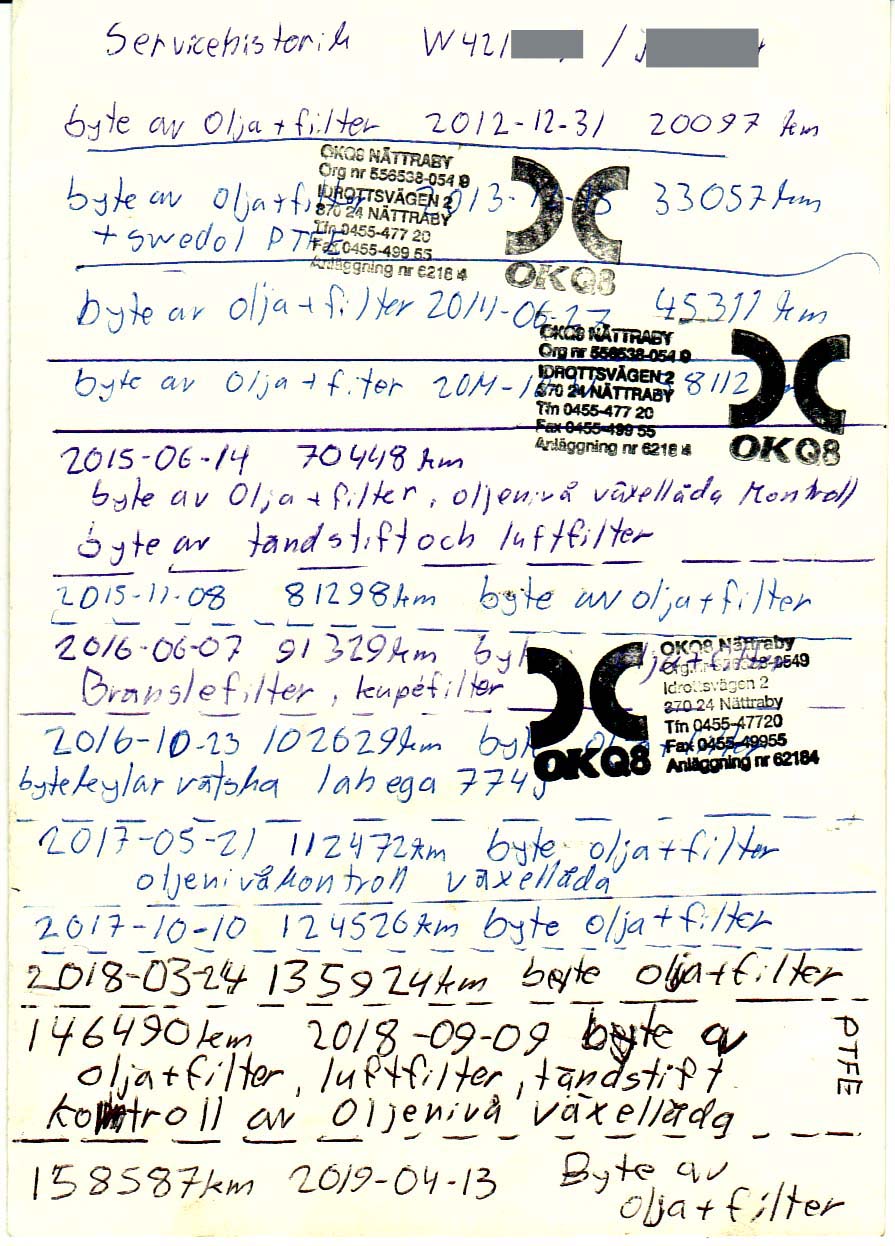 Servicehistorik W421 /
byte av olja + filter 2012-12-31 20097 km
OKQ8 NÄTTRABY
Org nr 556538-054 9
IDROTTSVÄGEN 2
370 24 NÄTTRABY
Tfn 0455-477 20
Fax 0455-499 55
Anläggning nr 6218 4
OKQ8
byte av olja + filter 2013-12- 33057 km
+ swedol PTFE
byte av olja + filter 2014-06-27 45311 km
OKQ8 NÄTTRABY
Org nr 556538-054 9
IDROTTSVÄGEN 2
370 24 NÄTTRABY
Tfn 0455-477 20
Fax 0455-499 55
Anläggning nr 6218 4
OKQ8
byte av olja + filter 2014-1 8112
2015-06-14 70448 km
byte av olja + filter, oljenivå växellåda kontroll
byte av tändstift och luftfilter
2015-11-08 81298 km byte av olja + filter
2016-06-07 91329 km byte olja + filter
Bränslefilter, kupéfilter
OKQ8
OKQ8 Nättraby
Org.nr 556538-0549
Idrottsvägen 2
370 24 Nättraby
Tfn 0455-47720
Fax 0455-49955
Anläggning nr 62184
2016-10-23 102629 km byte olja + filter
byte kylar vätska lahega 774
2017-05-21 112472 km byte olja + filter
oljenivåkontroll växellåda
2017-10-10 124526 km byte olja + filter
2018-03-24 135924 km byte olja + filter
146490 km 2018-09-09 byte av
olja + filter, luftfilter, tändstift
kontroll av oljenivå växellåda
PTFE
158587 km 2019-04-13 Byte av
olja + filter